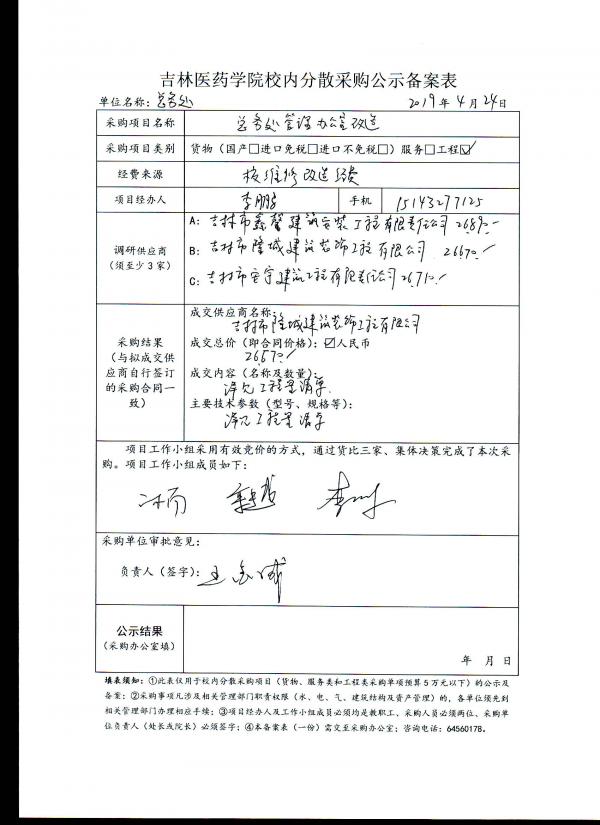 吉林医药学院校内分散采购公示备案表
单位名称：总务处 2019年4月24日
采购项目名称 总务处管理办公室改造
采购项目类别 货物（国产□进口免税□进口不免税□）服务□工程☑
经费来源 校维修改造经费
项目经办人 李鹏 手机 15143277125
调研供应商
（须至少3家）
A：吉林市鑫馨建筑安装工程有限责任公司 26890.-
B：吉林市隆城建筑装饰工程有限公司 26670.-
C：吉林市宏宇建筑工程有限责任公司 26710.-
采购结果
（与拟成交供
应商自行签订
的采购合同一
致）
成交供应商名称：
吉林市隆城建筑装饰工程有限公司
成交总价（即合同价格）：☑人民币
26670.-
成交内容（名称及数量）：
详见工程量清单
主要技术参数（型号、规格等）：
详见工程量清单
项目工作小组采用有效竞价的方式，通过货比三家、集体决策完成了本次采
购。项目工作小组成员如下：
采购单位审批意见：
负责人（签字）：
公示结果
（采购办公室填）
年 月 日
填表须知：①此表仅用于校内分散采购项目（货物、服务类和工程类采购单项预算5万元以下）的公示及
备案；②采购事项凡涉及相关管理部门职责权限（水、电、气、建筑结构及资产管理）的，各单位须先到
相关管理部门办理相应手续；③项目经办人及工作小组成员必须均是教职工，采购人员必须两位、采购单
位负责人（处长或院长）必须签字；④本备案表（一份）需交至采购办公室；咨询电话：64560178。